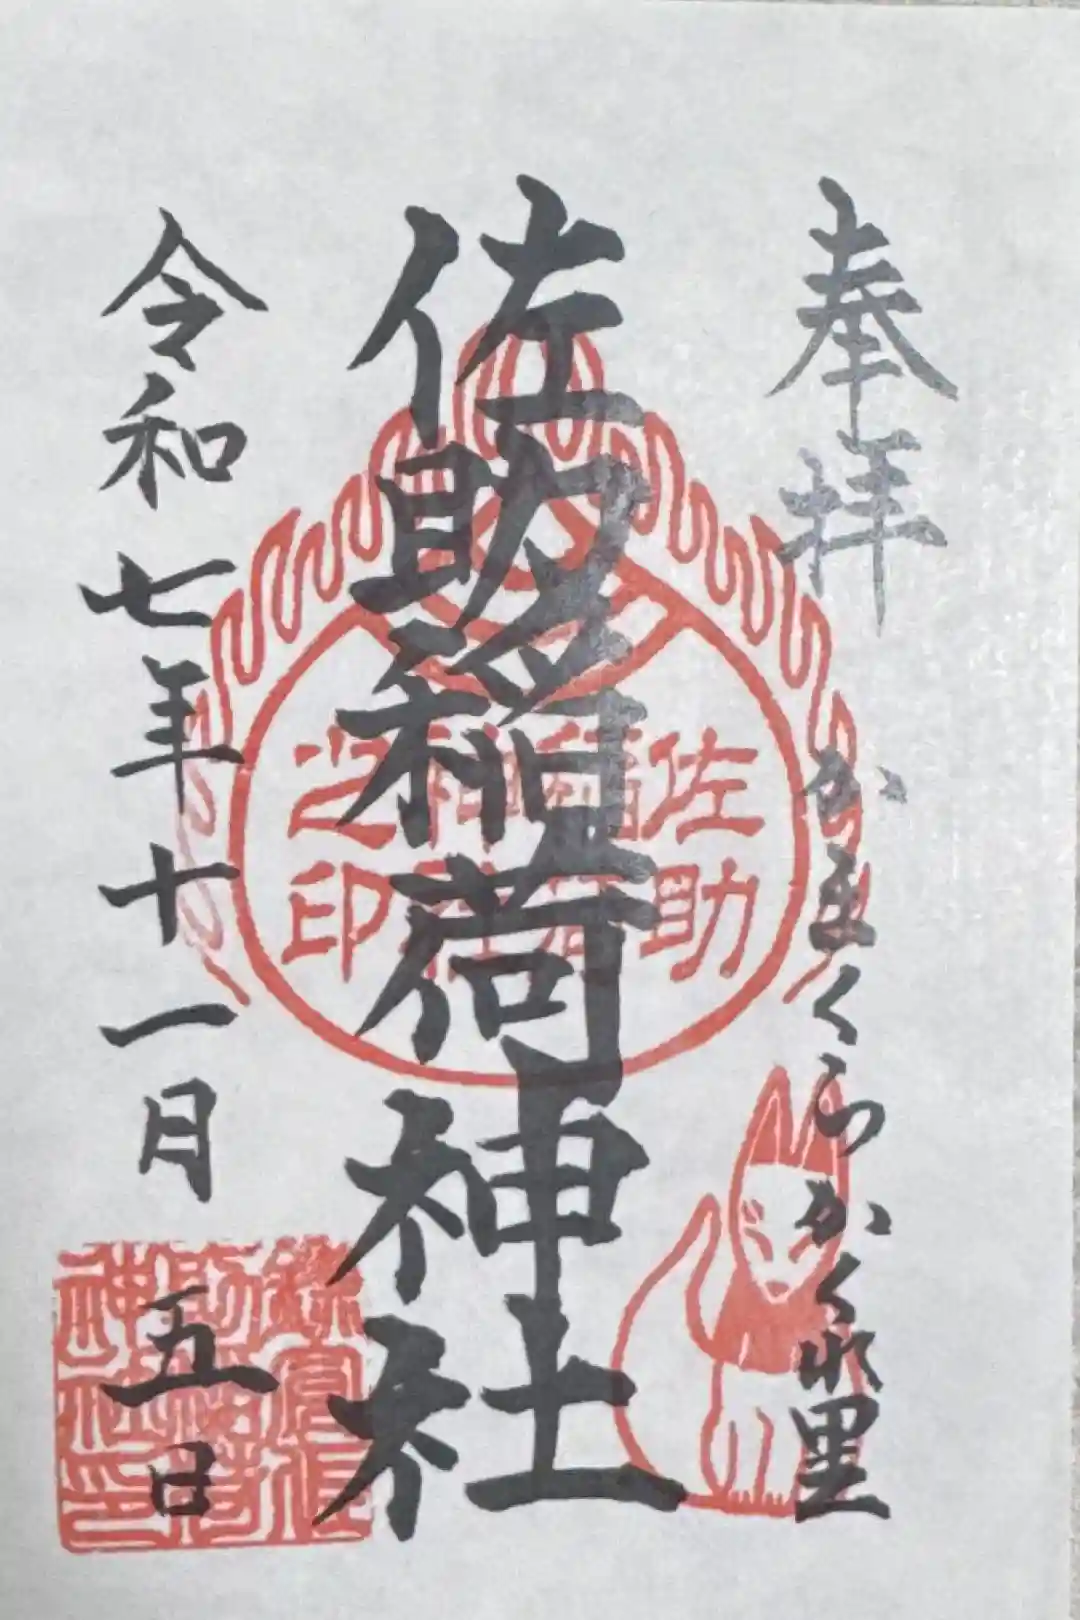 奉拝
かまくらかくれ里
佐助稲荷神社
令和七年十一月五日
佐助
稲荷
神社
之印
鎌倉佐
助稲荷
神社印